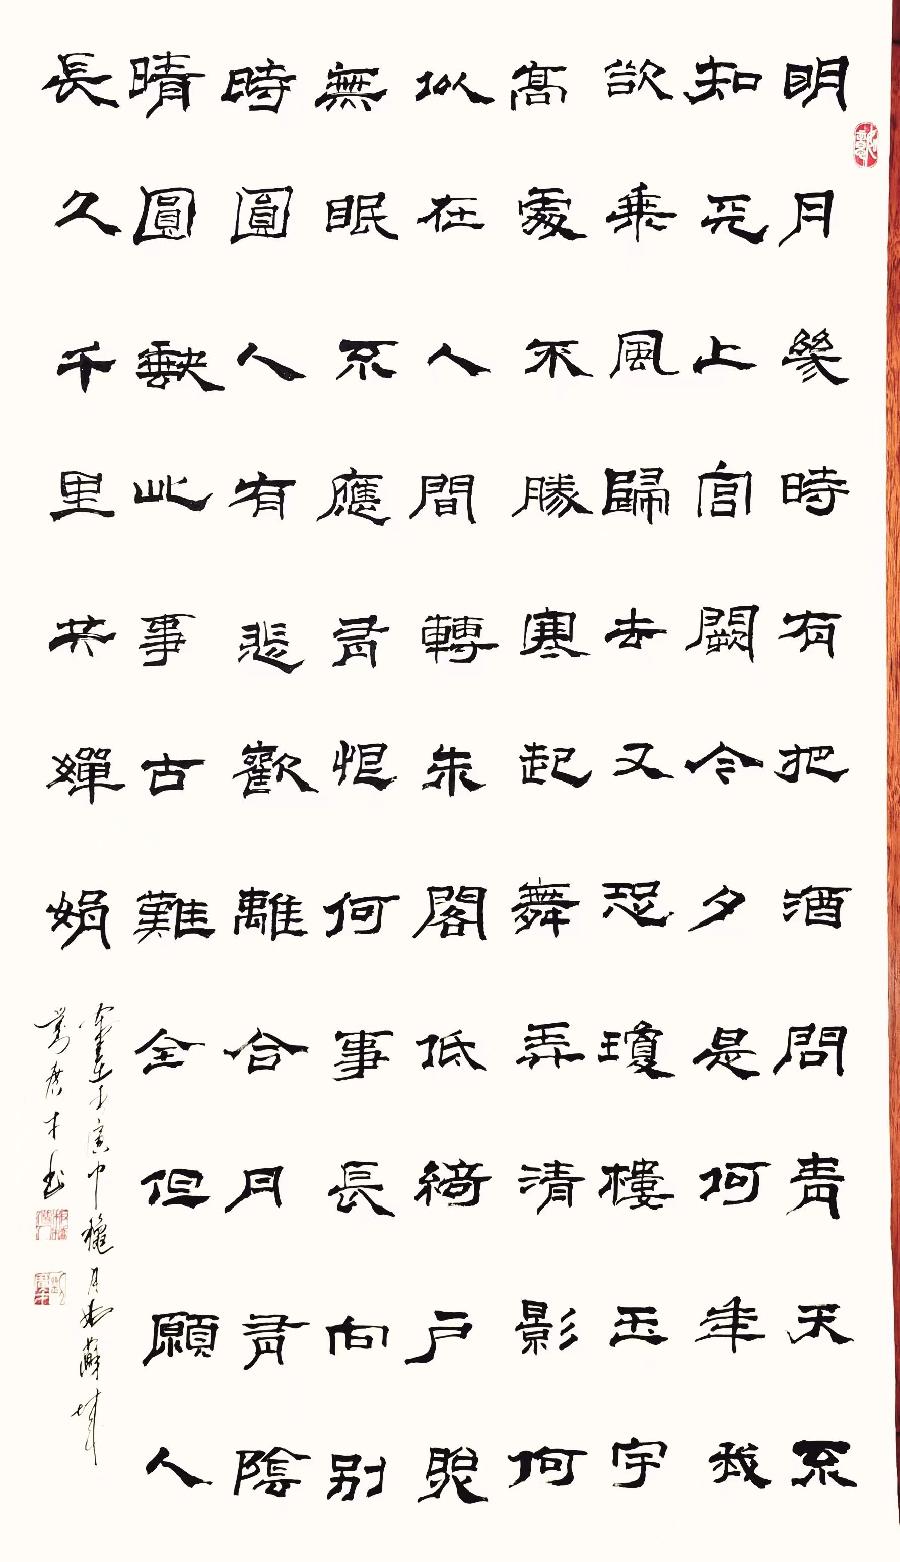 明月幾時有把酒問青天不
知天上宮闕今夕是何年我
欲乘風歸去又恐瓊樓玉宇
高處不勝寒起舞弄清影何
似在人間轉朱閣低綺戶照
無眠不應有恨何事長向別
時圓人有悲歡離合月有陰
晴圓缺此事古難全但願人
長久千里共嬋娟
壬寅中穐月於蘇城
書